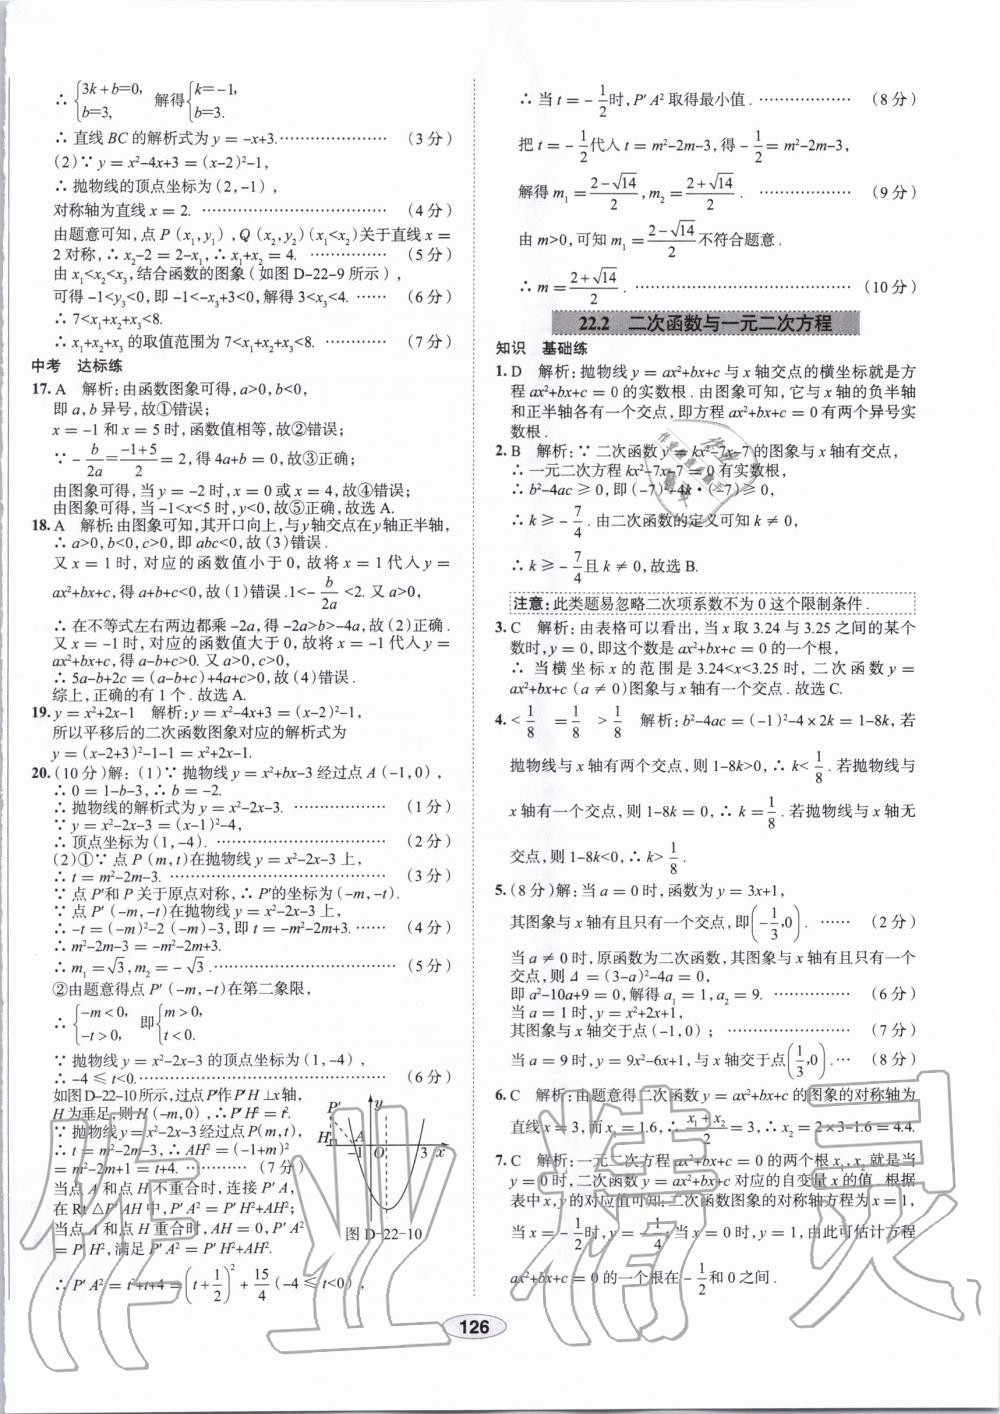 ∴ {3k+b=0, b=3, 解得 {k=-1, b=3.
∴ 直线 BC 的解析式为 y = -x+3. ………………… (3 分)
(2)∵ y = x²-4x+3 = (x-2)²-1,
∴ 抛物线的顶点坐标为 (2,-1),
对称轴为直线 x = 2. ……………………………… (4 分)
由题意可知,点 P (x₁,y₁) ,Q (x₂,y₂)(x₁<x₂)关于直线 x =
2 对称,∴ x₂-2 = 2-x₁,∴ x₁+x₂ = 4. …………… (5 分)
由 x₁<x₂<x₃,结合函数的图象(如图 D-22-9 所示),
可得 -1<y₃<0,即 -1<-x₃+3<0,解得 3<x₃<4. …… (6 分)
∴ 7<x₁+x₂+x₃<8.
∴ x₁+x₂+x₃ 的取值范围为 7<x₁+x₂+x₃<8. ………… (7 分)
中考 达标练
17. A 解析:由函数图象可得,a>0,b<0,
即 a,b 异号,故①错误;
x = -1 和 x = 5 时,函数值相等,故②错误;
∵ -b/2a = (-1+5)/2 = 2,得 4a+b = 0,故③正确;
由图象可得,当 y = -2 时,x = 0 或 x = 4,故④错误;
由图象可得,当 -1<x<5 时,y<0,故⑤正确,故选 A.
18. A 解析:由图象可知,其开口向上,与 y 轴交点在 y 轴正半轴,
∴ a>0,b<0,c>0,即 abc<0,故 (3) 错误.
又 x = 1 时,对应的函数值小于 0,故将 x = 1 代入 y =
ax²+bx+c,得 a+b+c<0,故 (1) 错误. 1<-b/2a<2. 又 a>0,
∴ 在不等式左右两边都乘 -2a,得 -2a>b>-4a,故 (2) 正确.
又 x = -1 时,对应的函数值大于 0,故将 x = -1 代入 y =
ax²+bx+c,得 a-b+c>0. 又 a>0,c>0,
∴ 5a-b+2c = (a-b+c)+4a+c>0,故 (4) 错误.
综上,正确的有 1 个. 故选 A.
19. y = x²+2x-1 解析:y = x²-4x+3 = (x-2)²-1,
所以平移后的二次函数图象对应的解析式为
y = (x-2+3)²-1-1 = x²+2x-1.
20. (10 分)解:(1)∵ 抛物线 y = x²+bx-3 经过点 A (-1,0),
∴ 0 = 1-b-3,∴ b = -2.
∴ 抛物线的解析式为 y = x²-2x-3. ……………… (1 分)
∵ y = x²-2x-3 = (x-1)²-4,
∴ 顶点坐标为 (1,-4). …………………………… (2 分)
(2)①∵ 点 P (m,t)在抛物线 y = x²-2x-3 上,
∴ t = m²-2m-3. ………………………………… (3 分)
∵ 点 P′和 P 关于原点对称,∴ P′的坐标为 (-m,-t).
∵ 点 P′ (-m,-t)在抛物线 y = x²-2x-3 上,
∴ -t = (-m)²-2 (-m)-3,即 t = -m²-2m+3. …… (4 分)
∴ m²-2m-3 = -m²-2m+3.
∴ m₁ = √3,m₂ = -√3. …………………………… (5 分)
②由题意得点 P′ (-m,-t)在第二象限,
∴ {-m<0, -t>0, 即 {m>0, t<0.
∵ 抛物线 y = x²-2x-3 的顶点坐标为 (1,-4),
∴ -4 ≤ t<0. ……………………………………… (6 分)
如图 D-22-10 所示,过点 P′作 P′H ⊥x 轴,
H 为垂足,则 H (-m,0),∴ P′H² = t².
∵ 抛物线 y = x²-2x-3 经过点 P(m,t),
∴ t = m²-2m-3,∴ AH² = (-m+1)²
= m²-2m+1 = t+4. ………… (7 分)
当点 A 和点 H 不重合时,连接 P′A,
在 Rt △P′AH 中,P′A² = P′H²+AH²;
当点 A 和点 H 重合时,AH = 0,P′A²
= P′H²,满足 P′A² = P′H²+AH².
P′ y H A -1 O 3 x
图 D-22-10
∴ P′A² = t²+t+4 = (t+1/2)²+15/4 (-4 ≤ t<0),
∴ 当 t = -1/2 时,P′A² 取得最小值. ……………… (8 分)
把 t = -1/2 代入 t = m²-2m-3,得 -1/2 = m²-2m-3,
解得 m₁ = (2-√14)/2,m₂ = (2+√14)/2. ……………… (9 分)
由 m>0,可知 m₁ = (2-√14)/2 不符合题意.
∴ m = (2+√14)/2. ………………………………… (10 分)
22.2 二次函数与一元二次方程
知识 基础练
1. D 解析:抛物线 y = ax²+bx+c 与 x 轴交点的横坐标就是方
程 ax²+bx+c = 0 的实数根. 由图象可知,它与 x 轴的负半轴
和正半轴各有一个交点,即方程 ax²+bx+c = 0 有两个异号实
数根.
2. B 解析:∵ 二次函数 y = kx²-7x-7 的图象与 x 轴有交点,
∴ 一元二次方程 kx²-7x-7 = 0 有实数根.
∴ b²-4ac ≥ 0,即 (-7)²-4k·(-7) ≥ 0,
∴ k ≥ -7/4. 由二次函数的定义可知 k ≠ 0,
∴ k ≥ -7/4 且 k ≠ 0,故选 B.
注意:此类题易忽略二次项系数不为 0 这个限制条件.
3. C 解析:由表格可以看出,当 x 取 3.24 与 3.25 之间的某个
数时,y = 0,即这个数是 ax²+bx+c = 0 的一个根,
∴ 当横坐标 x 的范围是 3.24<x<3.25 时,二次函数 y =
ax²+bx+c (a ≠ 0)图象与 x 轴有一个交点. 故选 C.
4. <1/8 =1/8 >1/8 解析:b²-4ac = (-1)²-4×2k = 1-8k,若
抛物线与 x 轴有两个交点,则 1-8k>0,∴ k<1/8. 若抛物线与
x 轴有一个交点,则 1-8k = 0,∴ k = 1/8. 若抛物线与 x 轴无
交点,则 1-8k<0,∴ k>1/8.
5. (8 分)解:当 a = 0 时,函数为 y = 3x+1,
其图象与 x 轴有且只有一个交点,即(-1/3,0). …… (2 分)
当 a ≠ 0 时,原函数为二次函数,其图象与 x 轴有且只有一个
交点,则 Δ = (3-a)²-4a = 0,
即 a²-10a+9 = 0,解得 a₁ = 1,a₂ = 9. …………… (6 分)
当 a = 1 时,y = x²+2x+1,
其图象与 x 轴交于点 (-1,0); …………………… (7 分)
当 a = 9 时,y = 9x²-6x+1,与 x 轴交于点(1/3,0). … (8 分)
6. C 解析:由题意得二次函数 y = ax²+bx+c 的图象的对称轴为
直线 x = 3,而 x₁ = 1.6,∴ (x₁+x₂)/2 = 3,∴ x₂ = 2×3-1.6 = 4.4.
7. C 解析:一元二次方程 ax²+bx+c = 0 的两个根 x₁,x₂ 就是当
y = 0 时,二次函数 y = ax²+bx+c 对应的自变量 x 的值. 根据
表中 x,y 的对应值可知,二次函数图象的对称轴方程为 x = 1,
当 x = -1/2 时,y = -1/4;当 x = 0 时,y = 1,由此可估计方程
ax²+bx+c = 0 的一个根在 -1/2 和 0 之间.
126
作业精灵